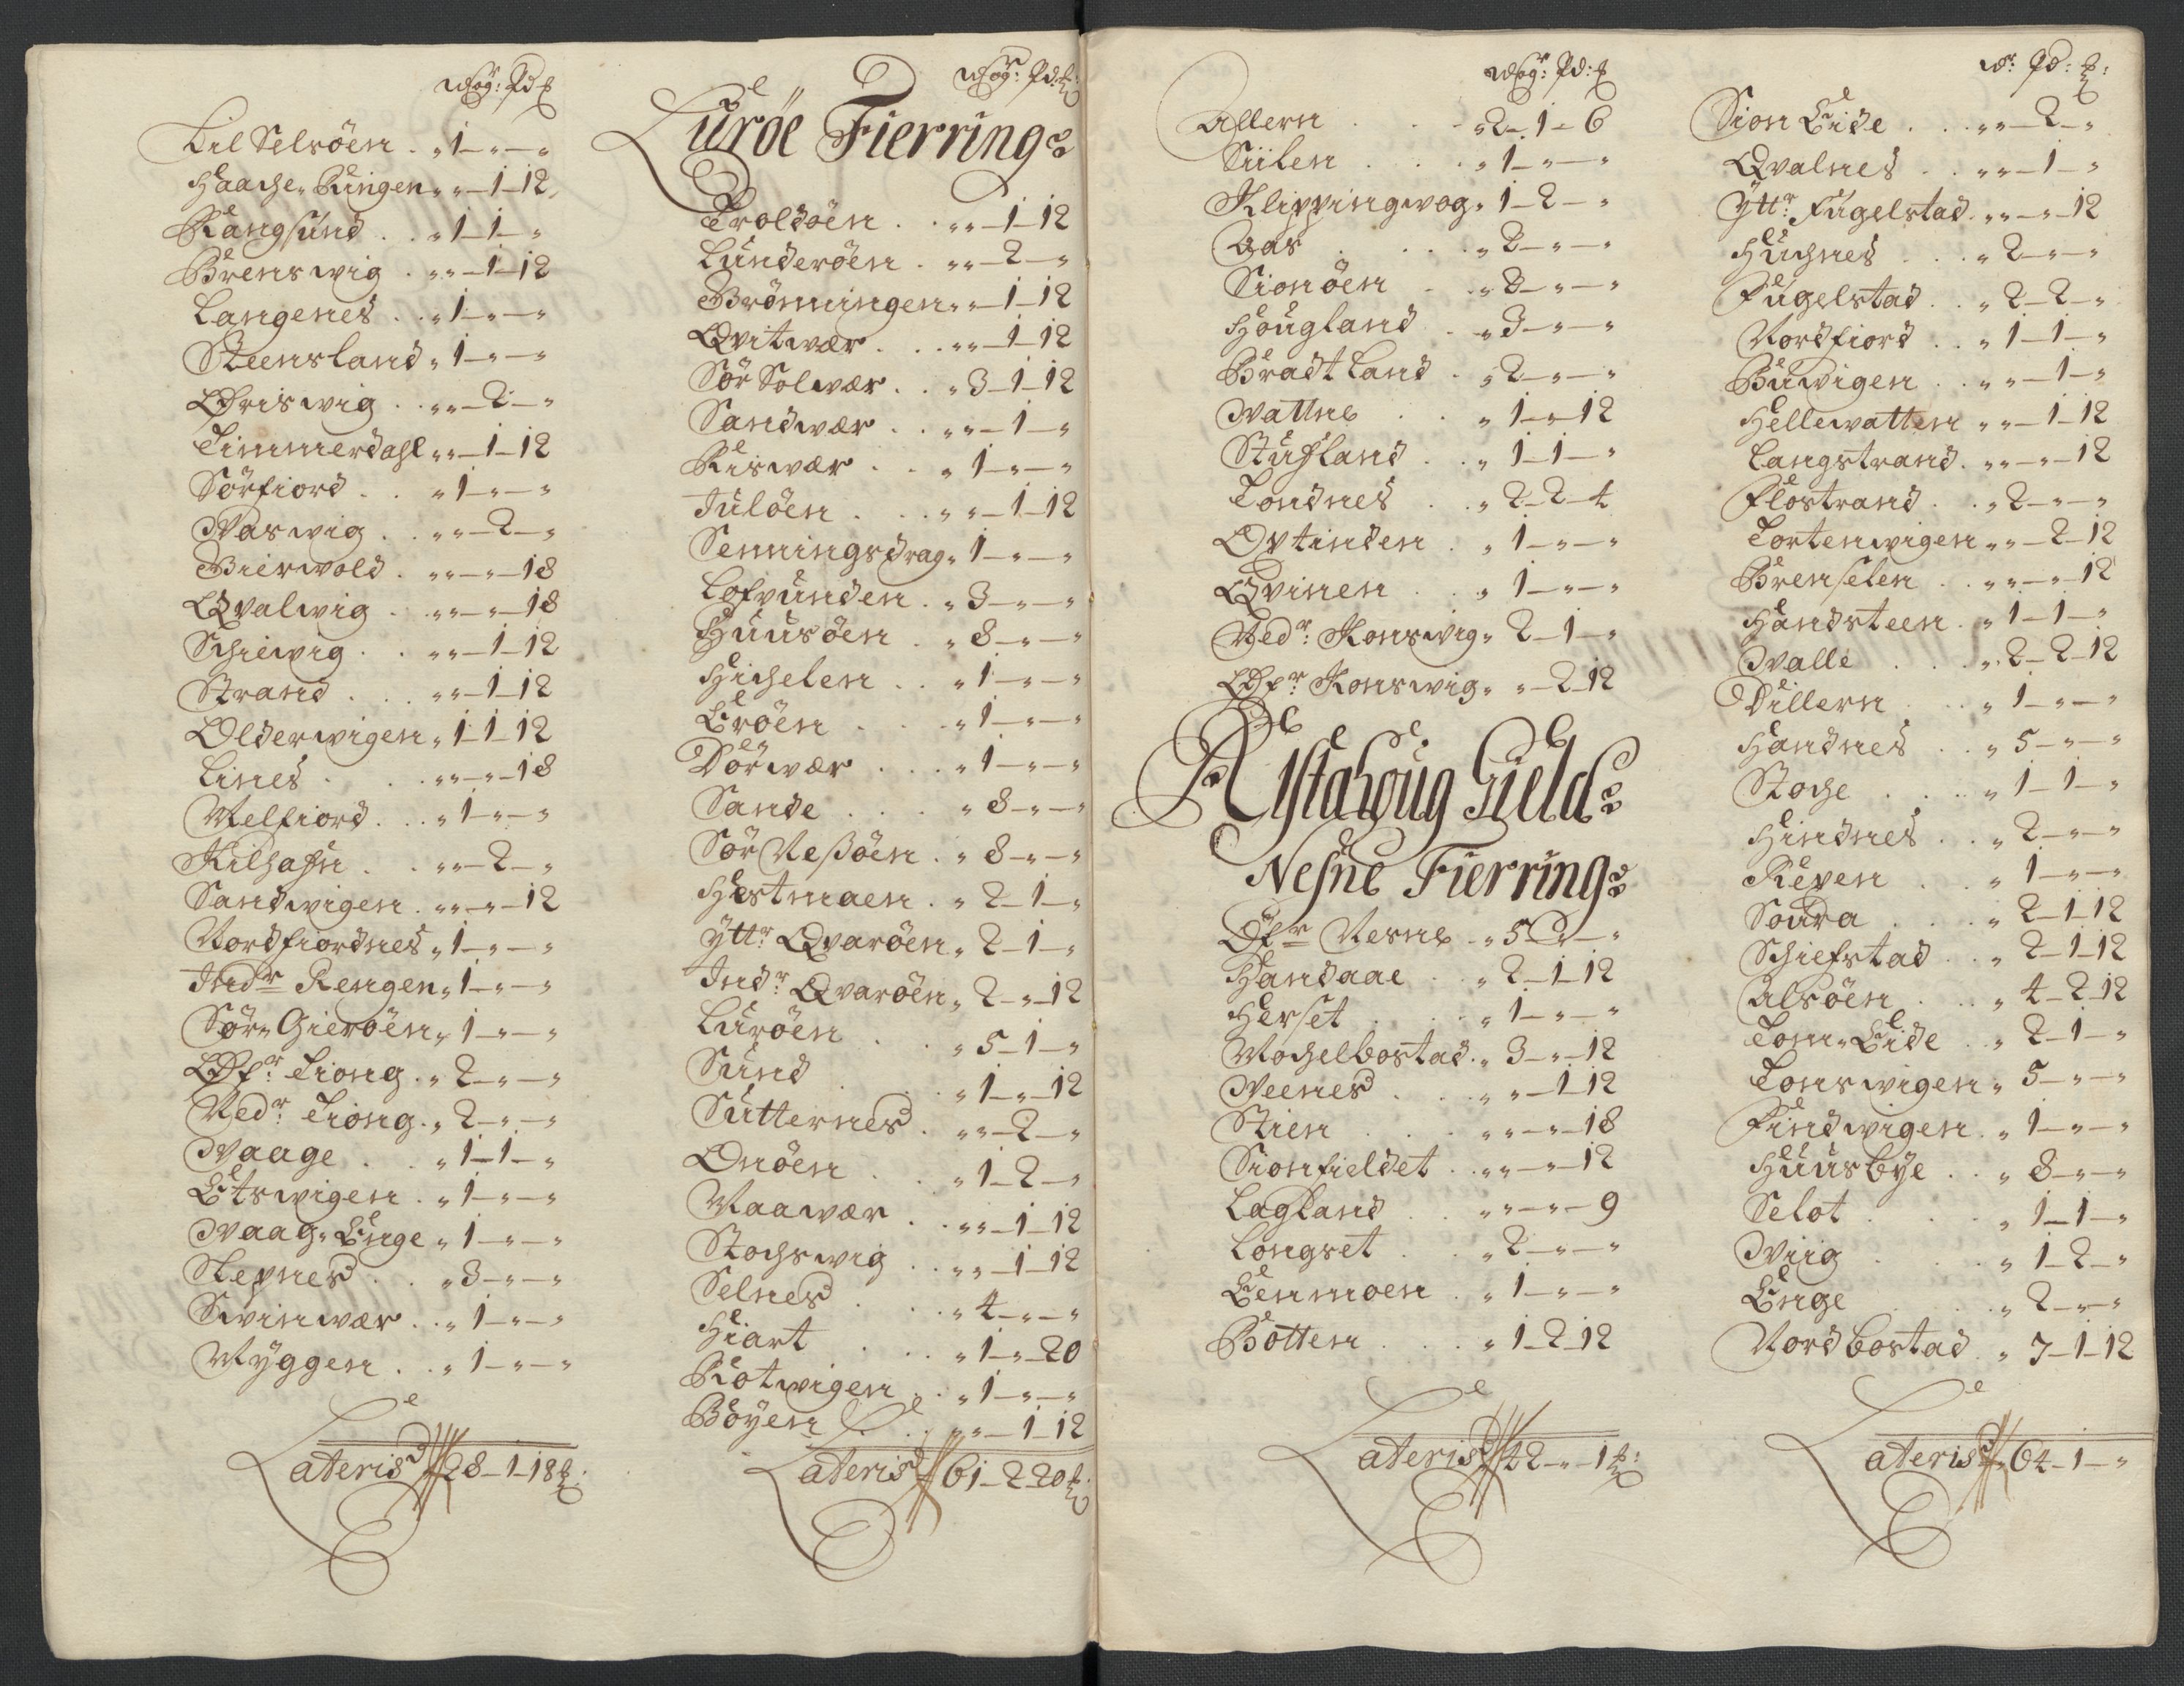 Wog: Pd ℔
Lil Selsöen . „ 1 - „ - „
Haache Ringen „ „ - 1 - 12
Rangsund . . „ 1 - 1 - „
Brenswig . „ „ - 1 - 12
Langenes . . „ 1 - „ - „
Steensland „ 1 - „ - „
Øriswig . . „ „ - 2 - „
Timmerdahl „ „ - 1 - 12
Sörfiord . . „ 1 - „ - „
Waswig . . „ „ - 2 - „
Bierwold . „ „ - „ - 18
Qvalwig . „ „ - „ - 18
Schiewig . . „ „ - 1 - 12
Strand . . „ „ - 1 - 12
Olderwigen „ 1 - 1 - 12
Lines . . „ „ - „ - 18
Melfiord . . „ 1 - „ - „
Kilhafn . . „ „ - 2 - „
Sandwigen . „ „ - „ - 12
Nordfiordnes „ 1 - „ - „
Indr Rengen „ 1 - „ - „
Sör Gieröen „ 1 - „ - „
Øfr: Tiong . „ 2 - „ - „
Nedr: Tiong . „ 2 - „ - „
Waage . . „ 1 - 1 - „
Etswigen . „ 1 - „ - „
Waag Enge „ 1 - „ - „
Stepnes . . „ 3 - „ - „
Swinwær . . „ 1 - „ - „
Myggen . . „ 1 - „ - „
Lateris 28 - 1 - 18 ℔:
Wog: Pd: ℔
Luröe Fierring:
Troldöen . . „ „ - 1 - 12
Lunderöen . „ „ - 2 - „
Brönningen „ „ - 1 - 12
Qvitwær . . „ „ - 1 - 12
Sör Solwær . . „ 3 - 1 - 12
Sandwær . . „ „ - 1 - „
Riswær . . „ 1 - „ - „
Julöen . . „ „ - 1 - 12
Senningsdrag „ 1 - „ - „
Lofvunden . „ 3 - „ - „
Huusöen . „ 8 - „ - „
Hichelen . . „ 1 - „ - „
Eröen . . „ 1 - „ - „
Dörwær . . „ 1 - „ - „
Sande . . „ 8 - „ - „
Sör Neßöen . „ 8 - „ - „
Hestmaen . „ 2 - 1 - „
Yttr: Qvaröen „ 2 - 1 - „
Indr: Qvaröen „ 2 - „ - 12
Luröen . . „ 5 - 1 - „
Sund . . „ 1 - „ - 12
Sutternes . „ „ - 2 - „
Onöen . . „ 1 - 2 - „
Maawær . . „ „ - 1 - 12
Stochswig . . „ „ - 1 - 12
Selnes . . „ 4 - „ - „
Hiart . . „ 1 - „ - 20
Rotwigen . . „ 1 - „ - „
Böyen . . „ „ - 1 - 12
Lateris 61 - 2 - 20 ℔:
Wog: Pd: ℔
Allern . . „ 2 - 1 - 6
Siilen . . „ 1 - „ - „
Klippingwog „ 1 - 2 - „
Aas . . „ 2 - „ - „
Sionöen . „ 2 - „ - „
Hougland . „ 3 - „ - „
Bradtland . „ 2 - „ - „
Wattne . . „ 1 - „ - 12
Stufland . . „ 1 - 1 - „
Tondnes . . „ 2 - 2 - 4
Optinden . „ 1 - „ - „
Qvinen . „ 1 - „ - „
Nedr: Konswig „ 2 - 1 - „
Øfr: Konswig „ „ - 2 - 12
Alstahoug Gield:
Nesne Fierring:
Øfr Nesne . „ 5 - „ - „
Handaae . „ 2 - 1 - 12
Herset . . „ 1 - „ - „
Mochelbostad . „ 3 - „ - 12
Neenes . . „ „ - 1 - 12
Stien . . „ „ - „ - 18
Sionfieldet . „ „ - „ - 12
Lagland . . „ „ - „ - 9
Longset . . „ 2 - „ - „
Eenmoen . „ 1 - „ - „
Botten . . „ 1 - 2 - 12
Lateris 42 - „ - 1 ℔:
W: Pd: ℔:
Sion Eide . . „ „ - 2 - „
Qvalnes . . „ „ - 1 - „
Yttr: Fugelstad . „ „ - „ - 12
Huchnes . . „ 2 - „ - „
Fugelstad . . „ 2 - 2 - „
Nordfiord . . „ 1 - 1 - „
Buwigen . . „ „ - 1 - „
Hellewatten „ „ - 1 - 12
Langstrand . „ „ - „ - 12
Flostrand . . „ 2 - „ - „
Tortenwigen „ „ - 2 - 12
Brenselen . „ „ - „ - 12
Handsteen . „ 1 - 1 - „
Walle . . „ 2 - 2 - 12
Dillern . . „ 1 - „ - „
Handnes . . „ 5 - „ - „
Stoche . . „ 1 - 1 - „
Hindnes . . „ 2 - „ - „
Repen . . „ 1 - „ - „
Soura . . „ 2 - 1 - 12
Schiefstad . . „ 2 - 1 - 12
Alsöen . . „ 4 - 2 - 12
Tom Eide . „ 2 - 1 - „
Tonswigen „ 5 - „ - „
Findwigen . „ 1 - „ - „
Huusbye . . „ 8 - „ - „
Selot . . „ 1 - 1 - „
Wiig . . „ 1 - 2 - „
Enge . . „ 2 - „ - „
Nordbostad . „ 7 - 1 - 12
Lateris 64 - 1 - „